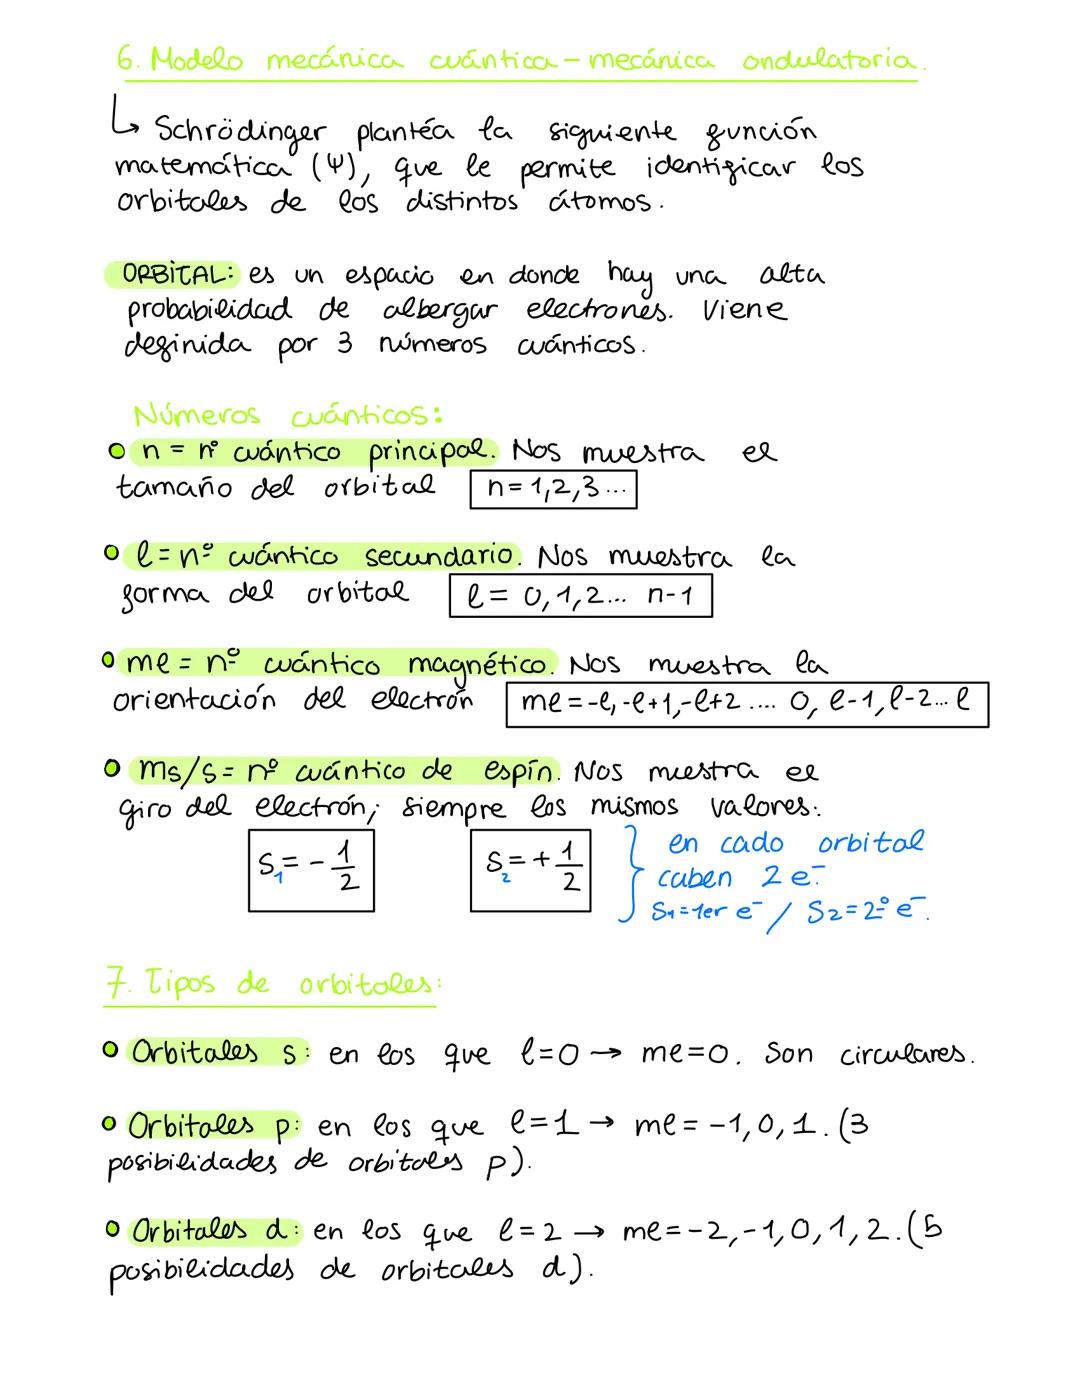 6. Modelo mecánica cuántica - mecánica ondulatoria.
↳ Schrödinger plantéa la siguiente función
matemática (Ψ), que le permite identificar los
orbitales de los distintos átomos.
ORBITAL: es un espacio en donde hay una alta
probabilidad de albergar electrones. Viene
definida por 3 números cuánticos.
Números cuánticos:
n = nº cuántico principal. Nos muestra el
tamaño del orbital n = 1,2,3...
l = nº cuántico secundario. Nos muestra la
forma del orbital l = 0,1,2... n-1
ml = nº cuántico magnético. Nos muestra la
orientación del electrón ml = -l, -l+1, -l+2 .... 0, l-1, l-2... l
ms/s = nº cuántico de espín. Nos muestra el
giro del electrón; siempre los mismos valores:
S₁ = - 1/2 S₂ = + 1/2 } en cado orbital
caben 2 e⁻.
S₁ = 1er e⁻ / S₂ = 2º e⁻.
7. Tipos de orbitales:
Orbitales s: en los que l=0 → ml=0. Son circulares.
Orbitales p: en los que l=1 → ml = -1,0,1. (3
posibilidades de orbitales p).
Orbitales d: en los que l=2 → ml=-2,-1,0,1,2. (5
posibilidades de orbitales d).